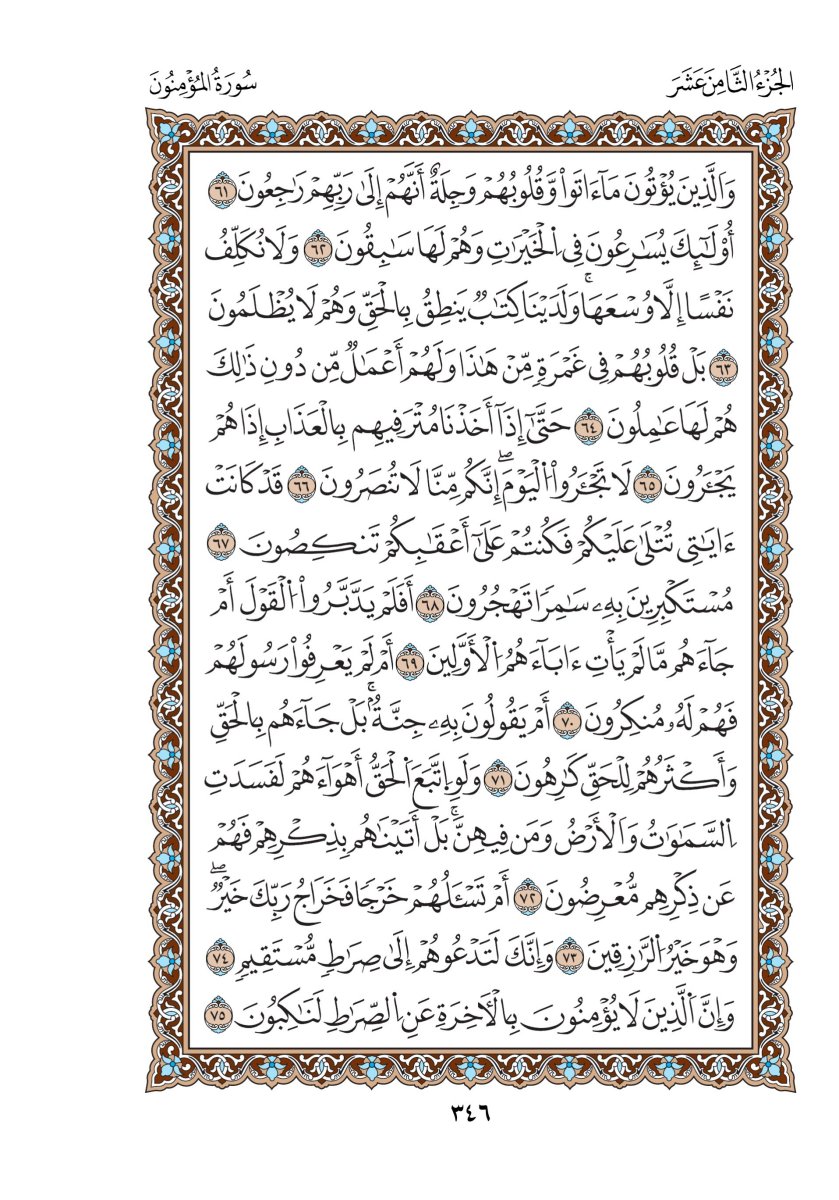 الجُزْءُ الثَّامِنَ عَشَرَ
سُورَةُ المُؤْمِنُونَ
وَالَّذِينَ يُؤْتُونَ مَآ ءَاتَواْ وَّقُلُوبُهُمْ وَجِلَةٌ أَنَّهُمْ إِلَىٰ رَبِّهِمْ رَٰجِعُونَ ٦١
أُوْلَٰٓئِكَ يُسَٰرِعُونَ فِى اِ۬لْخَيْرَٰتِ وَهُمْ لَهَا سَٰبِقُونَ ٦٢ وَلَا نُكَلِّفُ
نَفْسًا إِلَّا وُسْعَهَاۚ وَلَدَيْنَا كِتَٰبٌ يَنطِقُ بِالْحَقِّ وَهُمْ لَا يُظْلَمُونَ
٦٣ بَلْ قُلُوبُهُمْ فِى غَمْرَةٍ مِّنْ هَٰذَا وَلَهُمْ أَعْمَٰلٌ مِّن دُونِ ذَٰلِكَ
هُمْ لَهَا عَٰمِلُونَ ٦٤ حَتَّىٰٓ إِذَآ أَخَذْنَا مُتْرَفِيهِم بِالْعَذَابِ إِذَا هُمْ
يَجْـَٔرُونَ ٦٥ لَا تَجْـَٔرُواْ اُ۬لْيَوْمَۖ إِنَّكُم مِّنَّا لَا تُنصَرُونَ ٦٦ قَدْ كَانَتْ
ءَايَٰتِى تُتْلَىٰ عَلَيْكُمْ فَكُنتُمْ عَلَىٰٓ أَعْقَٰبِكُمْ تَنكِصُونَ ٦٧
مُسْتَكْبِرِينَ بِهِۦ سَٰمِرًا تَهْجُرُونَ ٦٨ أَفَلَمْ يَدَّبَّرُواْ اُ۬لْقَوْلَ أَمْ
جَآءَهُم مَّا لَمْ يَأْتِ ءَابَآءَهُمُ اُ۬لْأَوَّلِينَ ٦٩ أَمْ لَمْ يَعْرِفُواْ رَسُولَهُمْ
فَهُمْ لَهُۥ مُنكِرُونَ ٧٠ أَمْ يَقُولُونَ بِهِۦ جِنَّةُۢۚ بَلْ جَآءَهُم بِالْحَقِّ
وَأَكْثَرُهُمْ لِلْحَقِّ كَٰرِهُونَ ٧١ وَلَوِ اِ۪تَّبَعَ اَ۬لْحَقُّ أَهْوَآءَهُمْ لَفَسَدَتِ
اِ۬لسَّمَٰوَٰتُ وَالْأَرْضُ وَمَن فِيهِنَّۚ بَلْ أَتَيْنَٰهُم بِذِكْرِهِمْ فَهُمْ
عَن ذِكْرِهِم مُّعْرِضُونَ ٧٢ أَمْ تَسْـَٔلُهُمْ خَرْجًا فَخَرَاجُ رَبِّكَ خَيْرٌۖ
وَهُوَ خَيْرُ اُ۬لرَّٰزِقِينَ ٧٣ وَإِنَّكَ لَتَدْعُوهُمْ إِلَىٰ صِرَٰطٍ مُّسْتَقِيمٍ ٧٤
وَإِنَّ اَ۬لَّذِينَ لَا يُؤْمِنُونَ بِالْأٓخِرَةِ عَنِ اِ۬لصِّرَٰطِ لَنَٰكِبُونَ ٧٥
٣٤٦